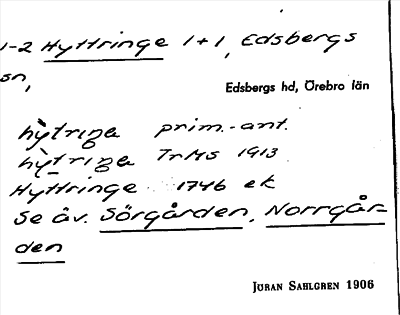 1-2 Hyttringe 1+1, Edsbergs
sn,
Edsbergs hd, Örebro län
hỳtriŋa prim.-ant.
hỳtriŋa TrHs 1913
Hyttringe 1746 ek
Se äv. Sörgården, Norrgår-
den
JÖRAN SAHLGREN 1906